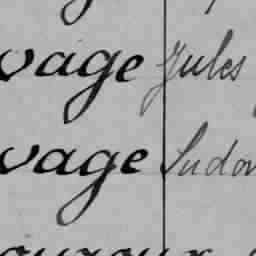 vage Jules
vage Ludov